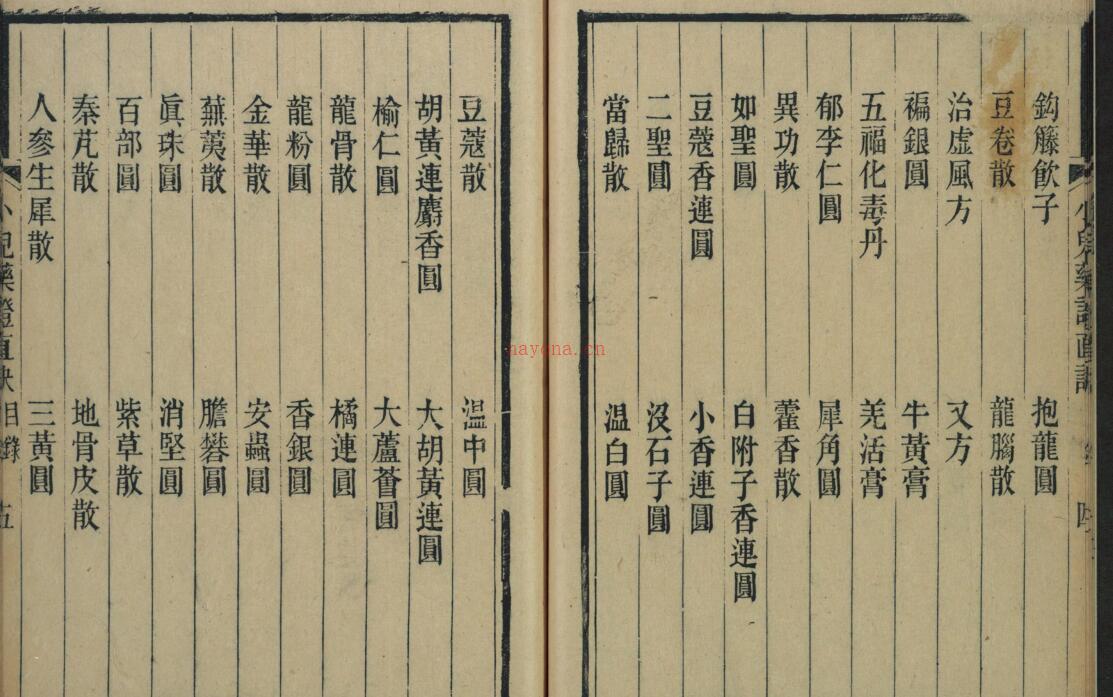 鈎籐飲子　抱龍圓
豆卷散　龍腦散
治虛風方　又方
褊銀圓　牛黃膏
五福化毒丹　羌活膏
郁李仁圓　犀角圓
異功散　藿香散
如聖圓　白附子香連圓
豆蔻香連圓　小香連圓
二聖圓　沒石子圓
當歸散　温白圓
豆蔻散　温中圓
胡黃連麝香圓　大胡黃連圓
榆仁圓　大蘆薈圓
龍骨散　橘連圓
龍粉圓　香銀圓
金華散　安蟲圓
蕪荑散　膽礬圓
眞珠圓　消堅圓
百部圓　紫草散
秦艽散　地骨皮散
人參生犀散　三黃圓
小兒藥證直訣　目錄　五
nayona.cn